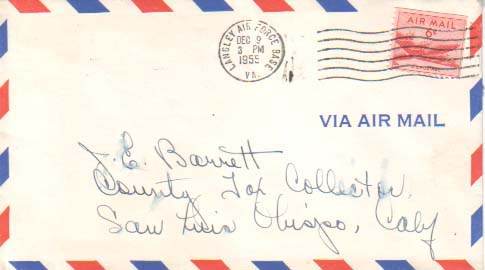 LANGLEY AIR FORCE BASE
DEC 9
3 PM
1955
VA.
AIR MAIL
6¢
VIA AIR MAIL
J. E. Barrett
County Tax Collector,
San Luis Obispo, Calif.